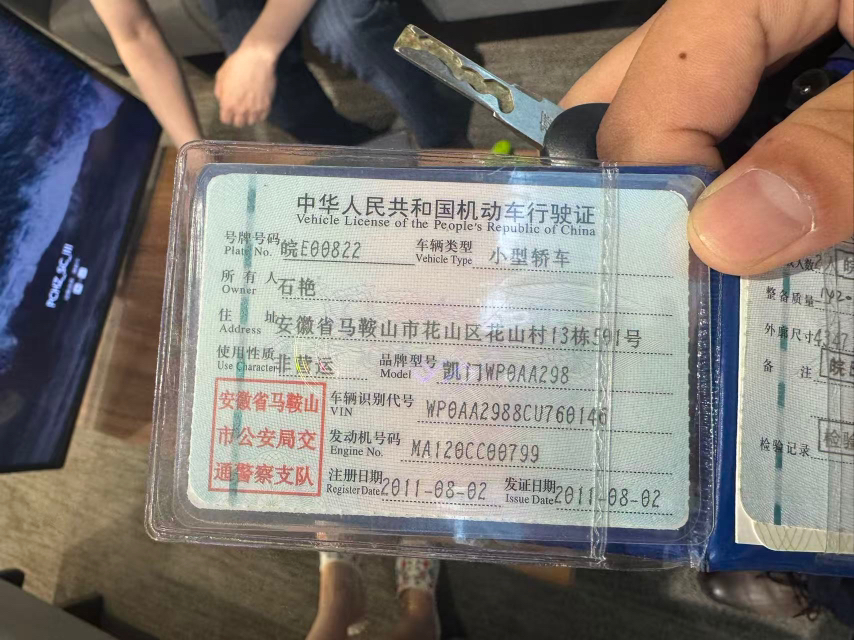 中华人民共和国机动车行驶证
Vehicle License of the People's Republic of China
号牌号码 皖E00822 车辆类型 小型轿车
Plate No. Vehicle Type
所有人 石艳
Owner
住址 安徽省马鞍山市花山区花山村13栋591号
Address
使用性质 非营运 品牌型号 凯门WP0AA298
Use Character Model
安徽省马鞍山
市公安局交
通警察支队
车辆识别代号 WP0AA2988CU760146
VIN
发动机号码 MA120CC00799
Engine No.
注册日期 2011-08-02 发证日期 2011-08-02
Register Date Issue Date
整备质量
外廓尺寸
备注
检验记录